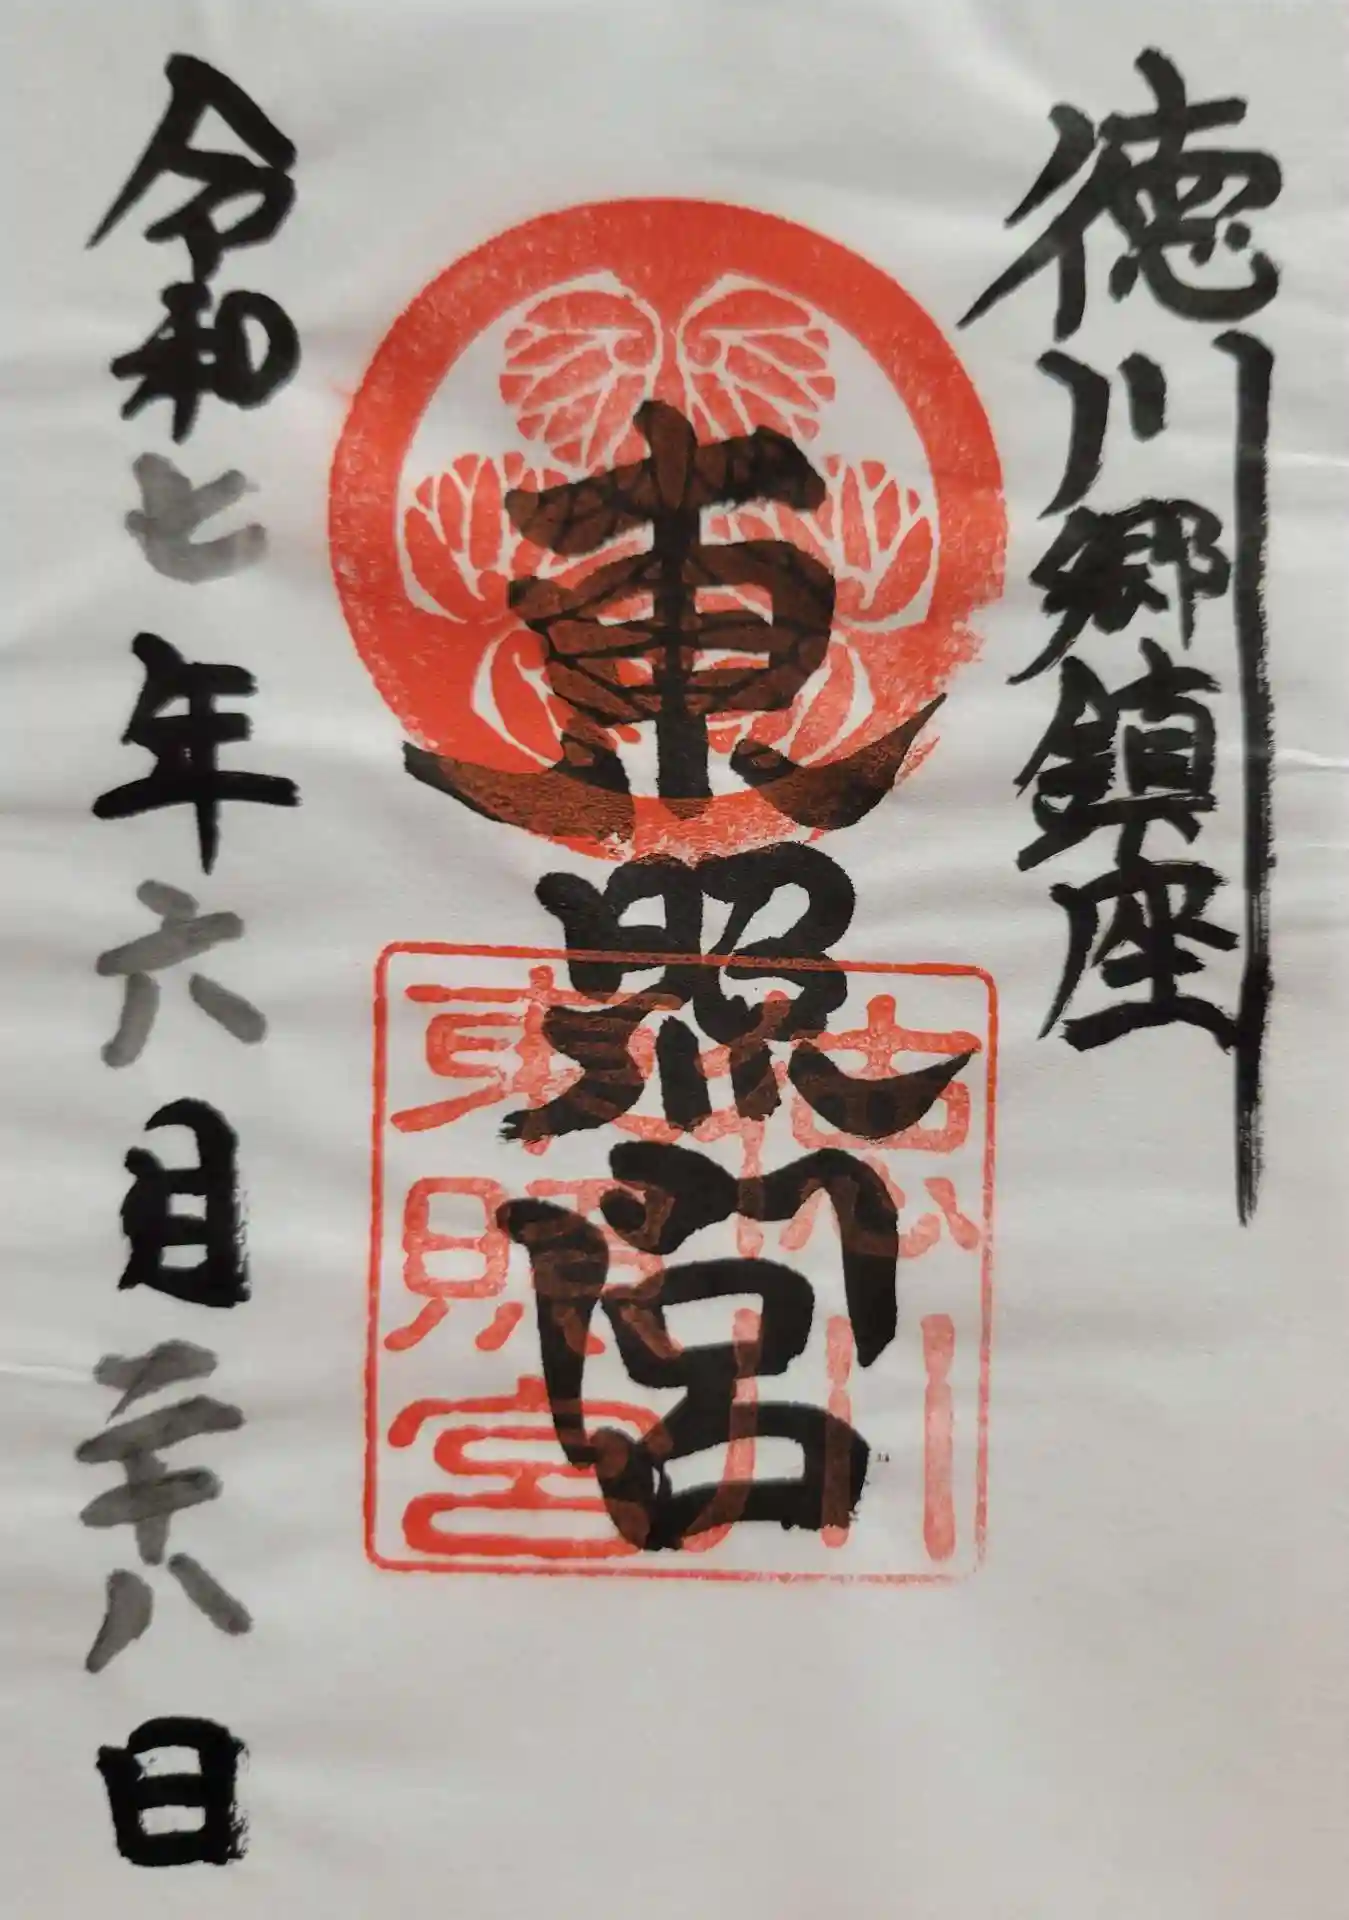 徳川郷鎮座
東照宮
徳川
東照宮
令和七年六月二十八日